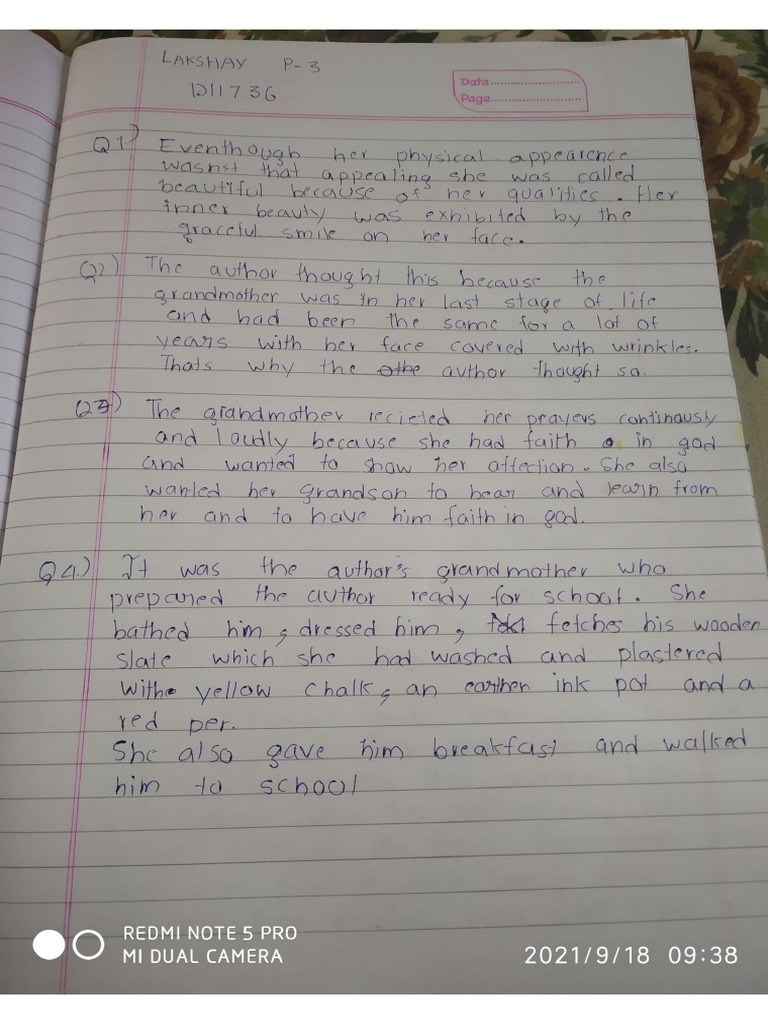 LAKSHAY P-3
1211736
Date
Page
Q1) Eventhough her physical appearence
wasnst that appealing she was called
beautiful because of her qualities. Her
inner beauty was exhibited by the
graceful smile on her face.
Q2) The author thought this because the
grandmother was in her last stage of life
and had been the same for a lot of
years with her face covered with wrinkles.
Thats why the author thought so.
Q3) The grandmother recieted her prayers continously
and loudly because she had faith in god
and wanted to show her affection. She also
wanted her grandson to hear and learn from
her and to have him faith in god.
Q4.) It was the author's grandmother who
prepared the author ready for school. She
bathed him, dressed him, fetches his wooden
slate which she had washed and plastered
with yellow chalk, an earthen ink pot and a
red pen.
She also gave him breakfast and walked
him to school
REDMI NOTE 5 PRO
MI DUAL CAMERA
2021/9/18 09:38